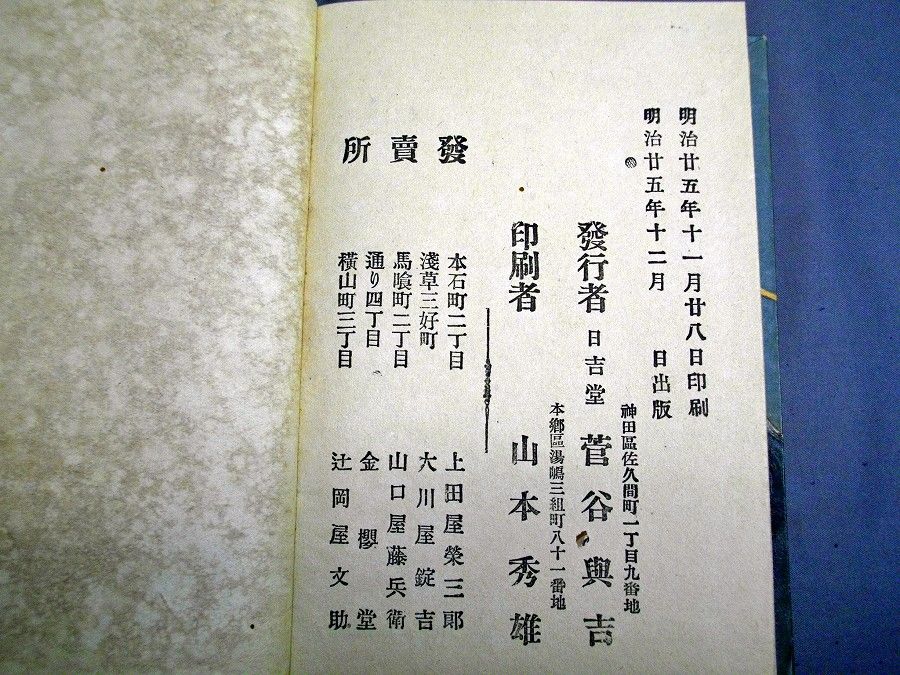 明治廿五年十一月廿八日印刷
明治廿五年十二月　日出版
神田區佐久間町一丁目九番地
發行者 日吉堂 菅谷與吉
本鄕區湯嶋三組町八十一番地
印刷者 山本秀雄
發賣所
本石町二丁目 上田屋榮三郞
淺草三好町 大川屋錠吉
馬喰町二丁目 山口屋藤兵衛
通り四丁目 金櫻堂
橫山町三丁目 辻岡屋文助